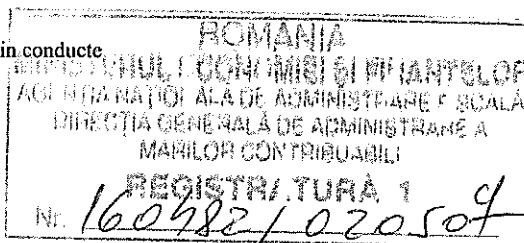 in conducte
ROMANIA
MINISTERUL ECONOMIEI SI FINANTELOR
AGENTIA NATIONALA DE ADMINISTRARE FISCALĂ
DIRECTIA GENERALĂ DE ADMINISTRARE A
MARILOR CONTRIBUABILI
REGISTRATURĂ 1
Nr. 160482 / 020504